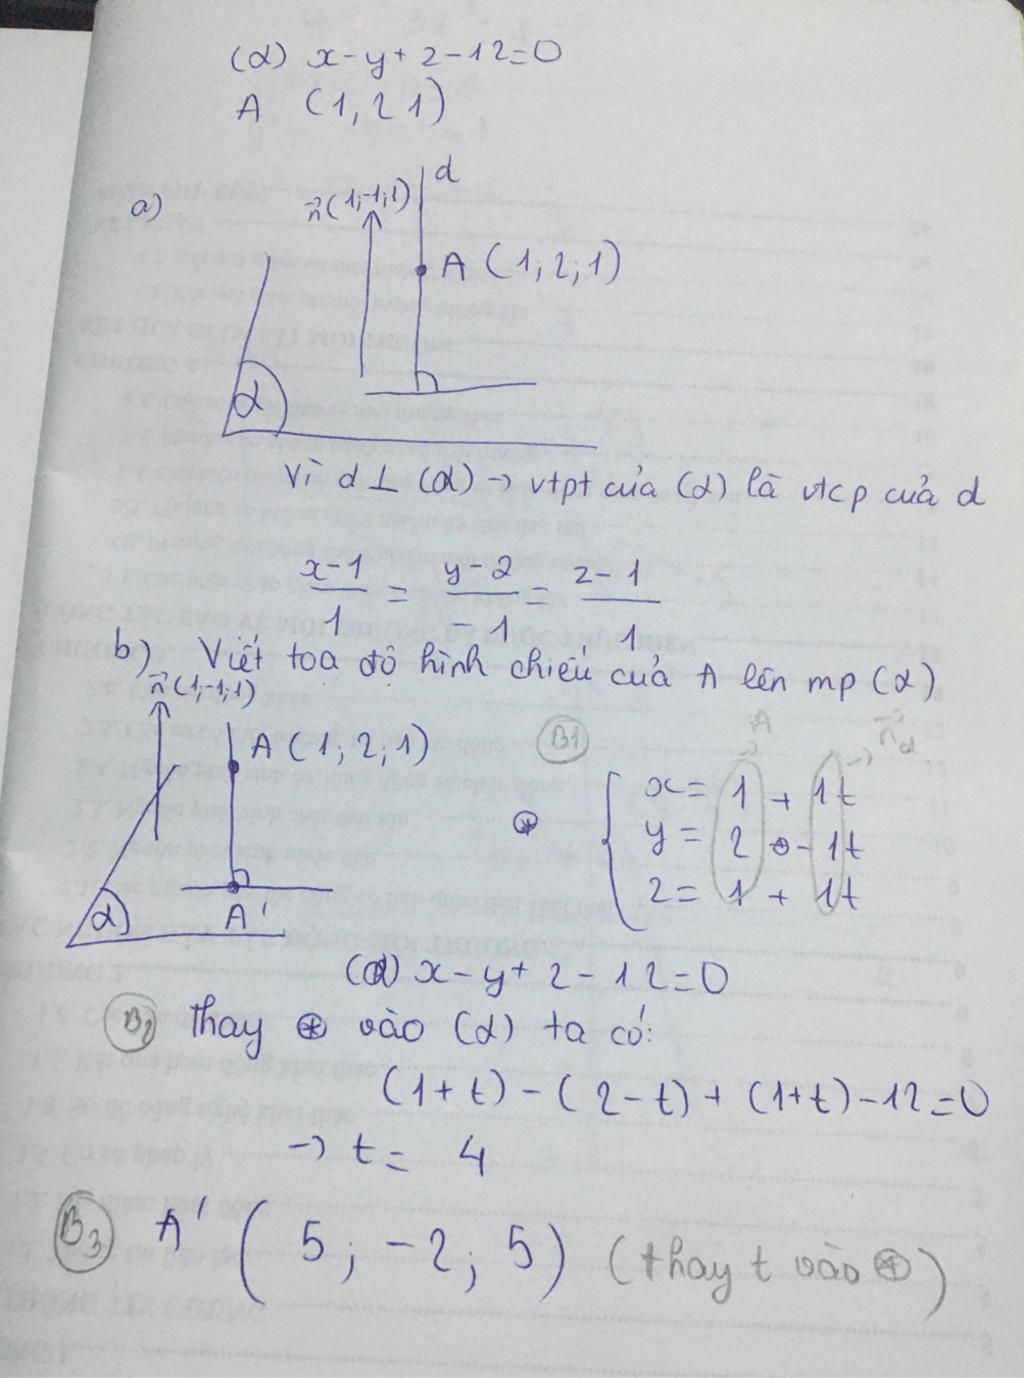 (α) x-y+z-12=0
A (1,2 1)
a)
d
n⃗(1;-1;1)
A (1;2;1)
α
Vì d⊥(α) → vtpt của (α) là vtcp của d
x-1/1 = y-2/-1 = z-1/1
b) Viết toạ độ hình chiếu của A lên mp (α)
n⃗(1;-1;1)
A (1;2;1)
α
A'
B1
A
n⃗α
⊛ { x = 1 + 1t
y = 2 - 1t
z = 1 + 1t
(α) x-y+z-12=0
B2 Thay ⊛ vào (α) ta có:
(1+t)-(2-t)+(1+t)-12=0
→ t = 4
B3 A' (5; -2; 5) (thay t vào ⊛)